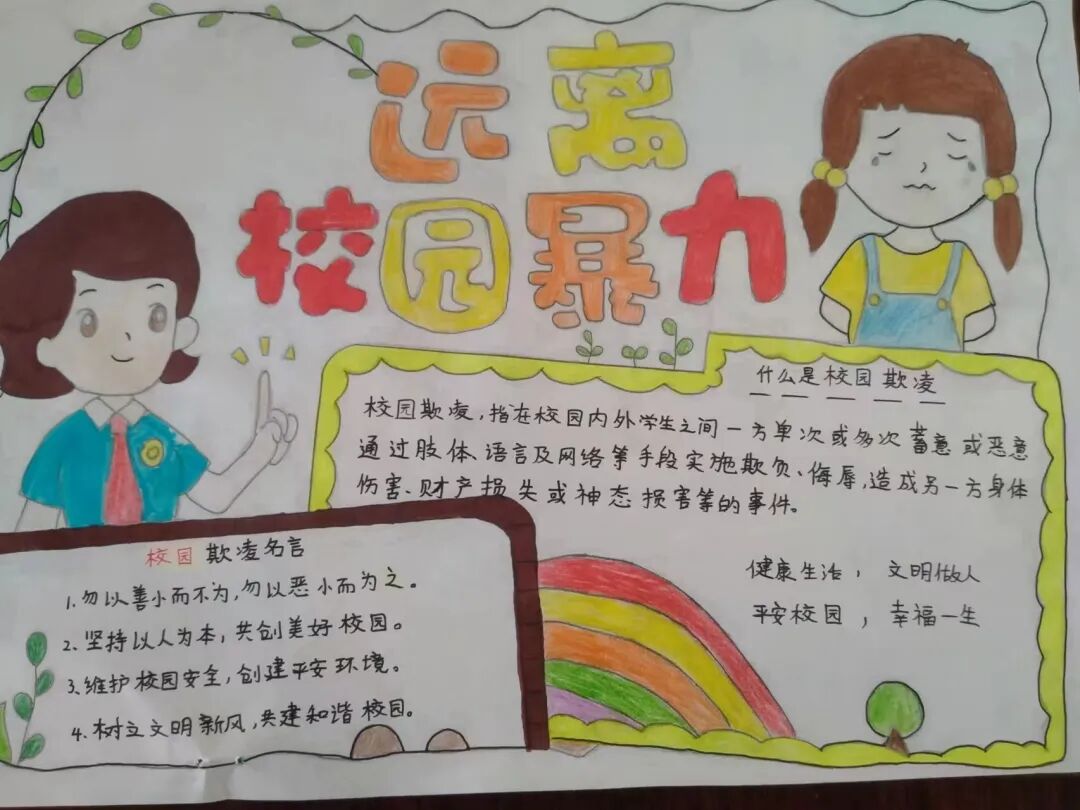 远离
校园暴力
什么是校园欺凌
校园欺凌,指在校园内外学生之间一方单次或多次蓄意或恶意
通过肢体语言及网络等手段实施欺负、侮辱,造成另一方身体
伤害、财产损失或神态损害等的事件。
健康生活，文明做人
平安校园，幸福一生
校园欺凌名言
1.勿以善小而不为,勿以恶小而为之。
2.坚持以人为本，共创美好校园。
3.维护校园安全,创建平安环境。
4.树立文明新风,共建和谐校园。